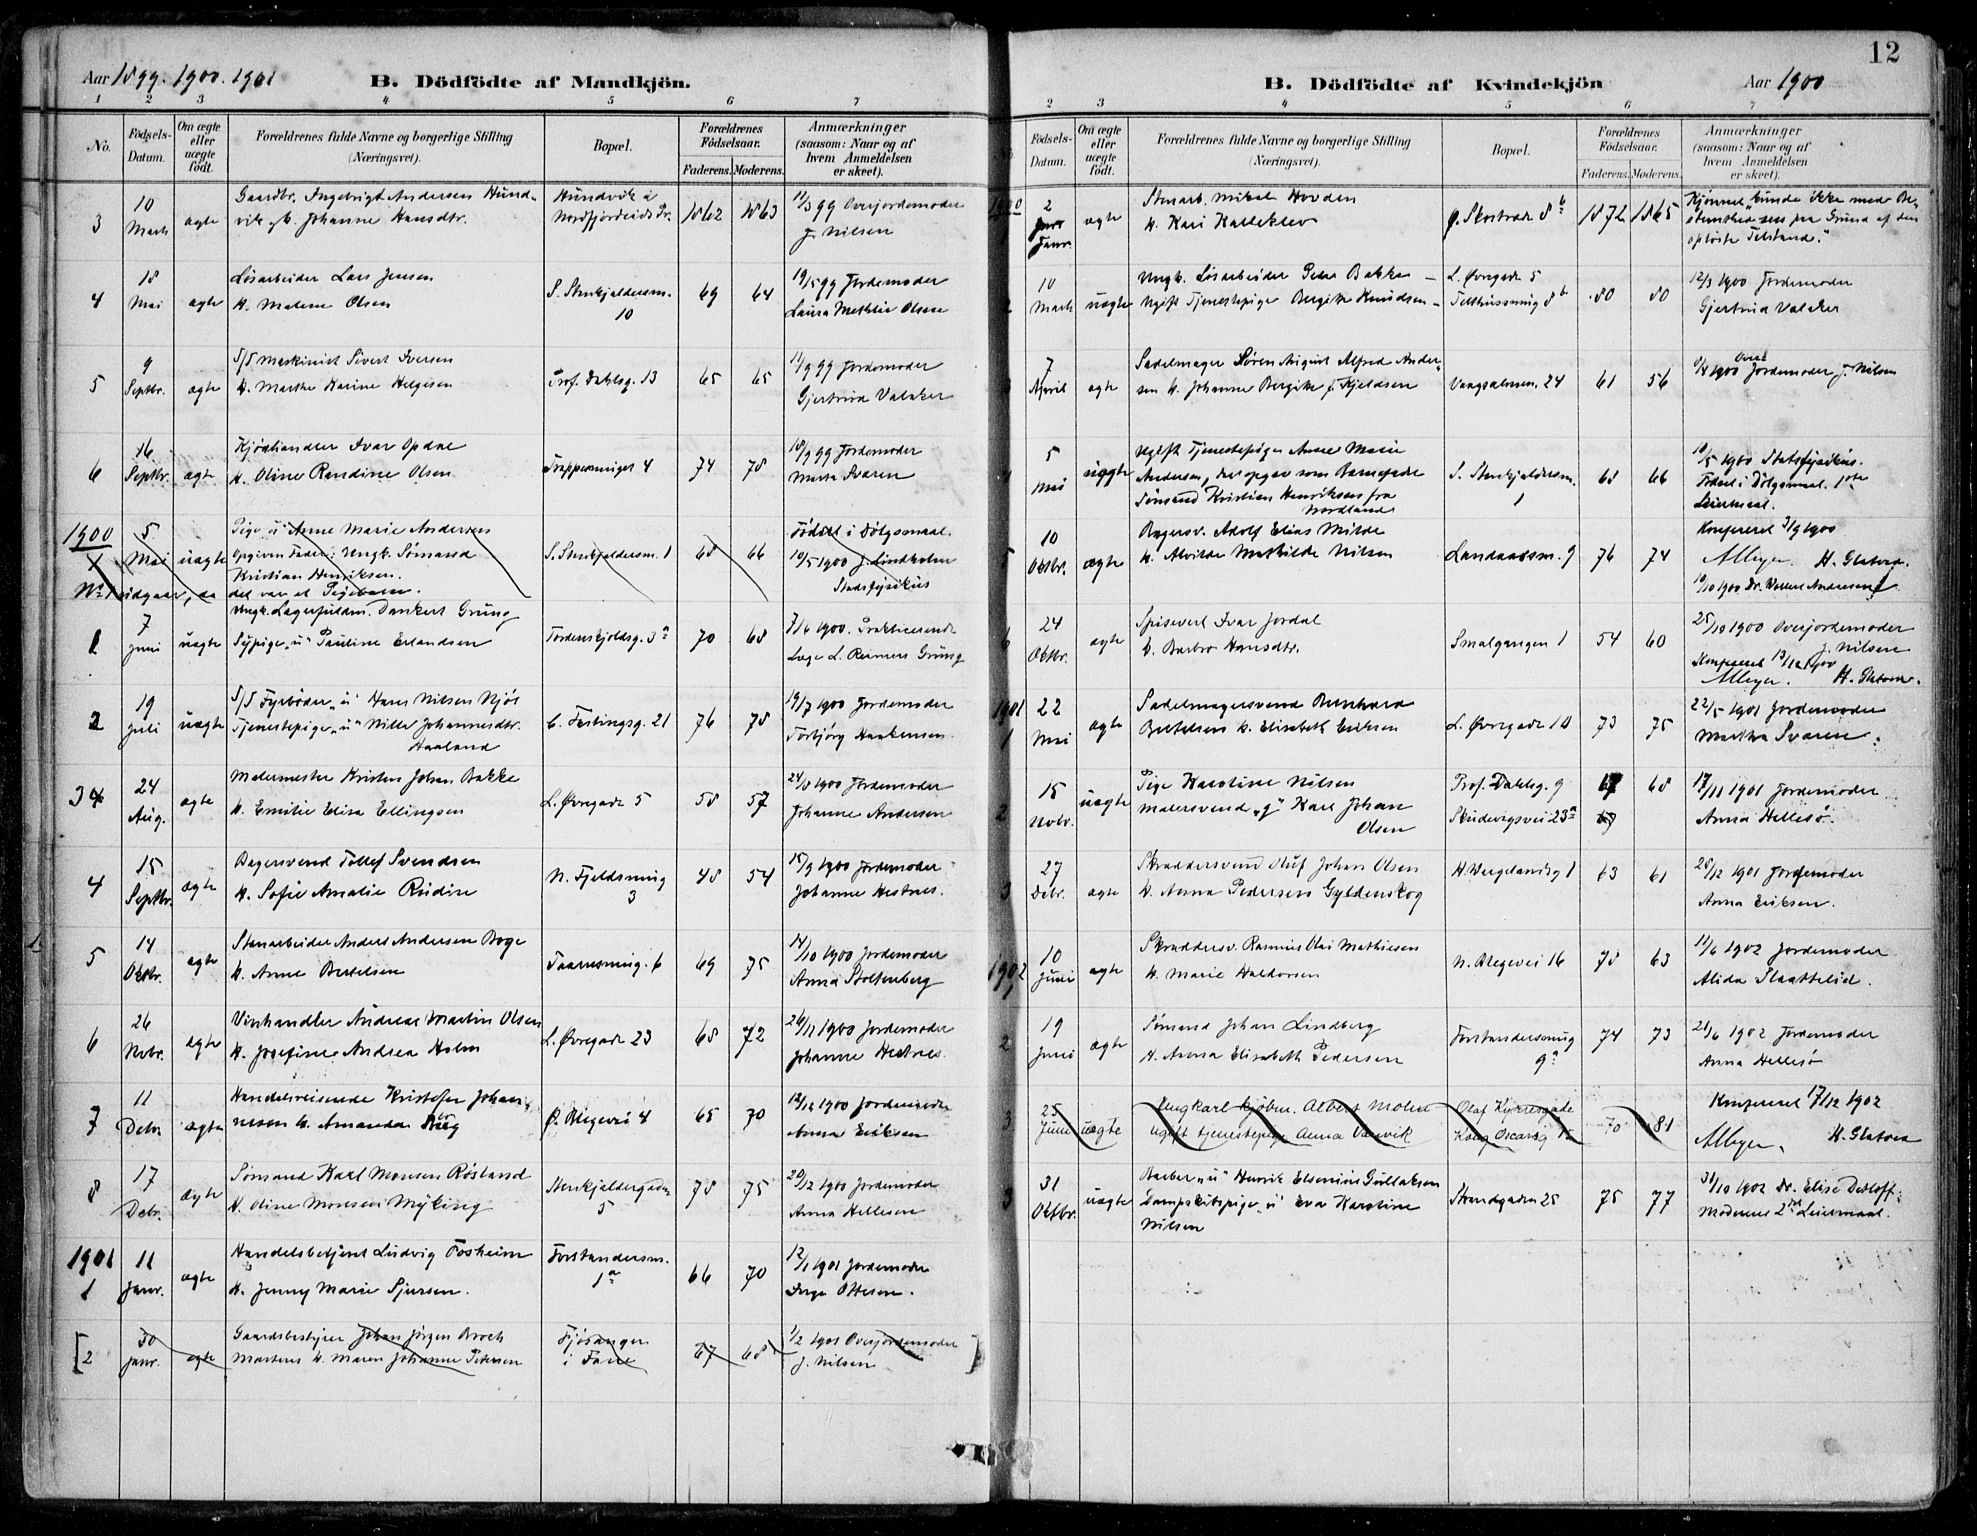 Aar 1899. 1900. 1901
B. Dödfödte af Mandkjön.
1 2 3 4 5 6 7
No.
Födsels-Datum.
Om ægte eller uægte födt.
Forældrenes fulde Navne og borgerlige Stilling (Næringsvei).
Bopæl.
Forældrenes Födselsaar.
Faderens. Moderens.
Anmærkninger (saasom: Naar og af hvem Anmeldelsen er skeet).
3 10 Marts ægte Gaardbr. Ingebrigt Andersen Hund-
vik, h. Johanne Hansdtr. Hundvik i Nordfjordeids Pr. 1862 1863 11/3 99 Overjordemoder
J. Nilsen
4 18 Mai ægte Løsarbeider Lars Jensen
H. Malene Olsen S. Stenkjeldersm. 10 69 64 19/5 99 Jordemoder
Laura Mathilde Olsen
5 9 Septbr. ægte S/S Maskinist Sivert Iversen
H. Marthe Karine Helgesen Prof. Dahlsg. 13 65 65 11/9 99 Jordemoder
Gjertrud Valaker
6 16 Septbr. ægte Kjødhandler Ivar Opdal
H. Oline Randine Olsen Trappesmuget 4 74 78 18/9 99 Jordemoder
Marta Svaren
1900
5 Mai uægte Pige "u" Anne Marie Andersen
Opgiven Fader: Ungk. Sømand
Kristian Henriksen. S. Stenkjeldersm. 1 68 66 Fødsel i Dølgsmaal.
10/5 1900 J. Lindholm
Stadsfysikus
No 1 udgaar, da det var et Pigebarn.
1 7 Juni uægte Ungk. Lagerfuldm. Dankert Grung
Sypige "u" Pauline Erlandsen Tordenskjoldsg. 3a 70 68 7/6 1900. Prakticerende
Læge L. Reimers Grung
2 19 Juli uægte S/S Fyrbøder "u" Hans Nilsen Njøs
Tjenestepige "u" Nille Johannesdtr.
Haaland C. Festingsg. 21 76 78 19/7 1900 Jordemoder
Torbjørg Haakensen.
3 24 Aug. ægte Malermester Kristen Johan Bakke
H. Emilie Elisa Ellingsen L. Øvregade 5 58 57 24/8 1900 Jordemoder
Johanne Andersen
4 15 Septbr. ægte Bagersvend Tollef Svendsen
H. Sofie Amalie Rudin N. Fjeldsmug 3 48 54 15/9 1900 Jordemoder
Johanne Hestnes.
5 14 Oktbr. ægte Stenarbeider Anders Andersen Boge
H. Anne Bertelsen Taaresmug. 6 69 75 14/10 1900 Jordemoder
Anna Stoltenberg
6 26 Novbr. ægte Vinhandler Andreas Martin Olsen
H. Josefine Andrea Holm L. Øvregade 23 68 72 26/11 1900 Jordemoder
Johanne Hestnes
7 11 Debr. ægte Handelsreisende Kristofer Johan-
nesen h. Amanda Ø. Blegevei 4 65 70 12/12 1900 Jordemoder
Anna Eriksen
8 17 Debr. ægte Sømand Karl Monsen Røsland
H. Oline Monsen Myking Stenkjeldergaden 5 78 75 20/12 1900 Jordemoder
Anna Hellesen
1901
1 11 Janr. ægte Handelsbetjent Ludvig Tosheim
H. Jenny Marie Sjursen. Forstandersm. 1a 66 70 12/1 1901 Jordemoder
Inga Ottesen.
[2 30 Janr. ægte Gaardsbestyrer Johan Jørgen Broch
Martens h. Maren Johanne Petersen Fjøsanger i Fane 67 68 1/2 1901 Overjordemoder
J. Nilsen]
12
B. Dödfödte af Kvindekjön
Aar 1900
2 3 4 5 6 7
Födsels-Datum.
Om ægte eller uægte födt.
Forældrenes fulde Navne og borgerlige Stilling (Næringsvei).
Bopæl.
Forældrenes Födselsaar.
Faderens. Moderens.
Anmærkninger (saasom: Naar og af hvem Anmeldelsen er skeet).
2 Janr. ægte Stenarb. Mikal Hovden
H. Kari Halleklev Ø. Skostræde 8b 1872 1865 Kjønnet "kunde ikke med Be-
stemthed sees paa Grund af den
opløste Tilstand."
10 Marts uægte Ungk. Løsarbeider Peder Bakke
Ugift Tjenestepige Bergitte Knudsen L. Øvregade 5
80 80 12/3 1900 Jordemoder
Gjertrud Valaker
7 April ægte Sadelmager Søren August Alfred Ander-
sen h. Johanne Bergitte f. Kjeldsen Vaagsalmen. 24 61 56 1900 Over Jordemoder J. Nilsen
5 Mai uægte Ugift Tjenestepige Anne Marie
Andersen, der opgav som Barnefader
Sømand Kristian Henriksen fra
Nordland S. Stenkjeldersm. 1 68 66 10/5 1900 Stadsfysikus.
Fødsel i Dølgsmaal. 1ste
Leiermaal.
10 Oktbr. ægte Bagersv. Adolf Elias Milde
H. Alvilde Mathilde Nilsen Landaassm. 9 76 74 Konfereret 3/9 1900
AMeyer. H. Glatved.
10/10 1900 Dr. Vollert Andersen
6 24 Oktbr. ægte Spisevert Ivar Jordal
h. Barbro Hansdtr. Smalgangen 1 54 60 25/10 1900 Overjordemoder
J. Nilsen
Konfereret 13/12 1900
AMeyer. H. Glatved.
1901
1 22 Mai ægte Sadelmagersvend Bernhard
Bertelsen h. Elisabeth Eriksen L. Øvregade 10 73 75 22/5 1901 Jordemoder
Martha Svaren.
2 15 Novbr. uægte Pige Karoline Nilsen
Malersvend "g" Karl Johan
Olsen Prof. Dahlsg. 9
Skudevigsvei 23a 67 68 17/11 1901 Jordemoder
Anna Hellesø.
3 27 Debr. ægte Skræddersvend Oluf Johan Olsen
H. Anna Pedersen Gyldenskog H. Wergelandsg 1 63 61 28/12 1901 Jordemoder
Anna Eriksen.
1902
1 10 Juni ægte Skræddersv. Rasmus Olai Mathiesen
H. Marie Haldorsen N. Blegevei 16 78 63 11/6 1902 Jordemoder
Alida Slaattelid.
2 19 Juni ægte Sømand Johan Lindberg
H. Anna Elisabeth Pedersen Forstandersmug 9a 74 73 21/6 1902 Jordemoder
Anna Hellesø
3 25 Juni uægte Ungkarl kjøbm. Albert Mohn
ugift tjenestepige Anna Vannvik Olaf Kyrresgade
Kong Oscarsg 70 81 Konfereret 17/12 1902
AMeyer, H. Glatved
3 31 Oktbr. uægte Barber "u" Henrik Elsenius Gullaksen
Dampskibspige "u" Eva Karoline
Nilsen Strandgaden 25 75 77 31/10 1902 Dr. Elise Detloff.
Moderens 2det Leiermaal.